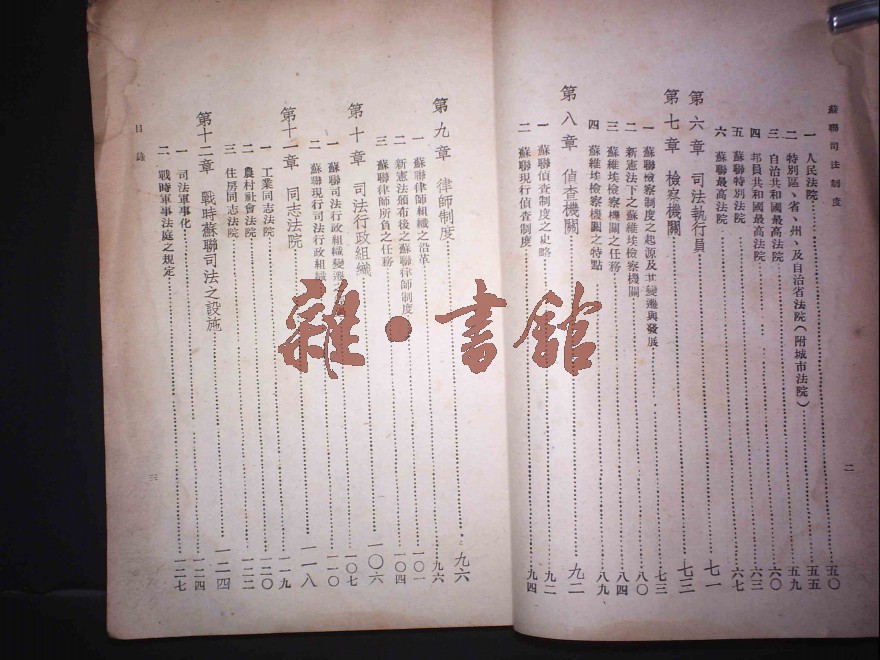 蘇聯司法制度
一 人民法院 五〇
二 特別區、省、州、及自治省法院(附城市法院) 五五
三 自治共和國最高法院 五九
四 邦員共和國最高法院 六〇
五 蘇聯特別法院 六三
六 蘇聯最高法院 六七
第六章 司法執行員 七一
第七章 檢察機關 七三
一 蘇聯檢察制度之起源及其變遷與發展 七三
二 新憲法下之蘇維埃檢察機關 八〇
三 蘇維埃檢察機關之任務 八四
四 蘇維埃檢察機關之特點 八九
第八章 偵查機關 九二
一 蘇聯偵查制度之史略 九二
二 蘇聯現行偵查制度 九四
二
第九章 律師制度 九六
一 蘇聯律師組織之沿革 九六
二 新憲法頒布後之蘇聯律師制度 一〇一
三 蘇聯律師所負之任務 一〇四
第十章 司法行政組織 一〇六
一 蘇聯司法行政組織變遷之 一〇七
二 蘇聯現行司法行政組織 一一〇
第十一章 同志法院 一一八
一 工業同志法院 一一九
二 農村社會法院 一二〇
三 住房同志法院 一二二
第十二章 戰時蘇聯司法之設施 一二四
一 司法軍事化 一二四
二 戰時軍事法庭之規定 一二七
目錄
三
雜·書館